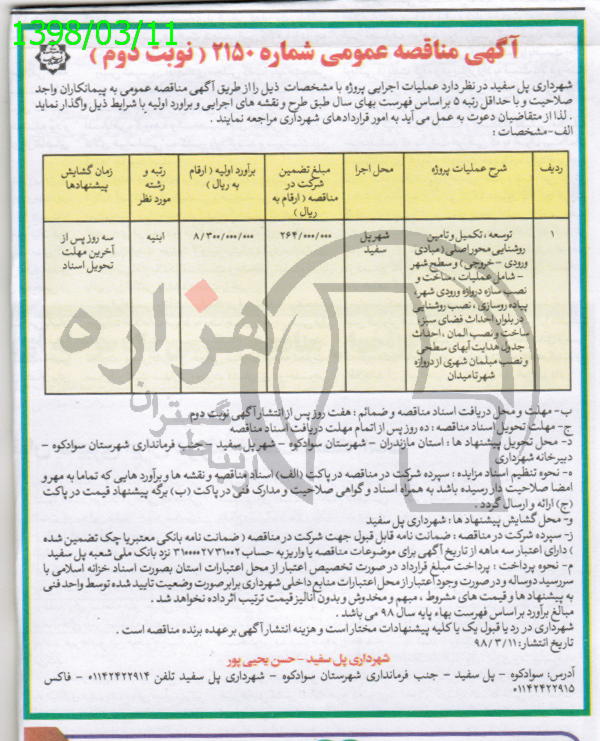 1398/03/11
آگهی مناقصه عمومی شماره ۲۱۵۰ ( نوبت دوم )
شهرداری پل سفید در نظر دارد عملیات اجرایی پروژه با مشخصات ذیل را از طریق آگهی مناقصه عمومی به پیمانکاران واجد
صلاحیت و با حداقل رتبه ۵ بر اساس فهرست بهای سال طبق طرح و نقشه های اجرایی و براورد اولیه با شرایط ذیل واگذار نماید
. لذا از متقاضیان دعوت به عمل می آید به امور قراردادهای شهرداری مراجعه نمایند .
الف-مشخصات :
ردیف
شرح عملیات پروژه
محل اجرا
مبلغ تضمین
شرکت در
مناقصه ( ارقام به
ریال )
برآورد اولیه ( ارقام
به ریال )
رتبه و
رشته
مورد نظر
زمان گشایش
پیشنهادها
۱
توسعه ، تکمیل و تامین
روشنایی محور اصلی ( مبادی
ورودی - خروجی ) و سطح شهر
- شامل عملیات ، ساخت و
نصب سازه دروازه ورودی شهر ،
پیاده روسازی ، نصب روشنایی
در بلوار، احداث فضای سبز ،
ساخت و نصب المان ، احداث
جدول هدایت آبهای سطحی
و نصب مبلمان شهری از دروازه
شهر تا میدان
شهر پل
سفید
۲۶۴/۰۰۰/۰۰۰
۸/۳۰۰/۰۰۰/۰۰۰
ابنیه
سه روز پس از
آخرین مهلت
تحویل اسناد
هزاره
ب- مهلت و محل دریافت اسناد مناقصه و ضمائم : هفت روز پس از انتشار آگهی نوبت دوم
ج- مهلت تحویل اسناد مناقصه : ده روز پس از اتمام مهلت دریافت اسناد مناقصه
د- محل تحویل پیشنهاد ها : استان مازندران - شهرستان سوادکوه - شهر پل سفید - جنب فرمانداری شهرستان سوادکوه -
دبیرخانه شهرداری
ه- نحوه تنظیم اسناد مزایده : سپرده شرکت در مناقصه در پاکت (الف) اسناد مناقصه و نقشه ها و برآورد هایی که تماما به مهر و
امضا صلاحیت دار رسیده باشد به همراه اسناد و گواهی صلاحیت و مدارک فنی در پاکت (ب) برگه پیشنهاد قیمت در پاکت
(ج) ارائه و ارسال گردد .
و- محل گشایش پیشنهاد ها : شهرداری پل سفید
ز- سپرده شرکت در مناقصه : ضمانت نامه قابل قبول جهت شرکت در مناقصه ( ضمانت نامه بانکی معتبر یا چک تضمین شده
) دارای اعتبار سه ماهه از تاریخ آگهی برای موضوعات مناقصه یا واریز به حساب ۳۱۰۰۰۰۲۷۳۱۰۰۲ نزد بانک ملی شعبه پل سفید
م- نحوه پرداخت : پرداخت مبلغ قرارداد در صورت تخصیص اعتبار از محل اعتبارات استان بصورت اسناد خزانه اسلامی با
سررسید دوساله و در صورت وجود اعتبار از محل اعتبارات منابع داخلی شهرداری برابر صورت وضعیت تایید شده توسط واحد فنی
به پیشنهاد ها و قیمت های مشروط ، مبهم و مخدوش و بدون آنالیز قیمت ترتیب اثر داده نخواهد شد .
مبالغ برآورد بر اساس فهرست بهاء پایه سال ۹۸ می باشد .
شهرداری در رد یا قبول یک یا کلیه پیشنهادات مختار است و هزینه انتشار آگهی بر عهده برنده مناقصه است .
تاریخ انتشار: ۹۸/۳/۱۱
شهرداری پل سفید - حسن یحیی پور
آدرس: سوادکوه - پل سفید - جنب فرمانداری شهرستان سوادکوه - شهرداری پل سفید تلفن ۰۱۱۴۲۴۲۲۹۱۴ - فاکس
۰۱۱۴۲۴۲۲۹۱۵